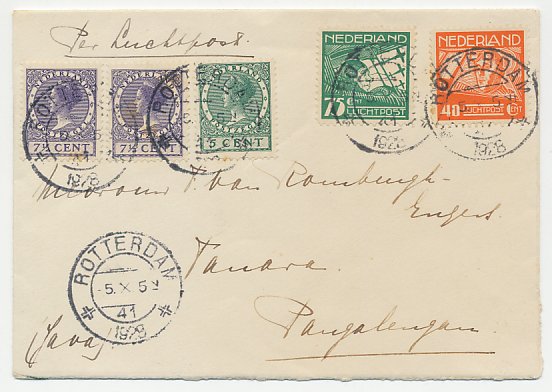 Per Luchtpost.
NEDERLAND
7½ CENT
NEDERLAND
7½ CENT
5 CENT
NEDERLAND
75 CENT
LUCHTPOST
NEDERLAND
40 CENT
LUCHTPOST
ROTTERDAM
1928
ROTTERDAM
1928
ROTTERDAM
1928
Mevrouw P. van Romburgh-
Engert.
Tanara
Pangalengan.
(Java)
ROTTERDAM
5.X 5V
41
1928